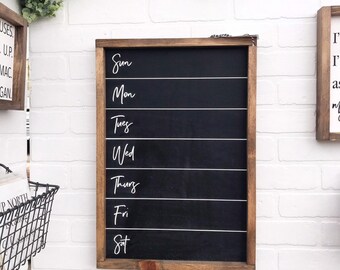 Sun
Mon
Tues
Wed
Thurs
Fri
Sat
USES.
U.P.
MAC.
GAN.
I'
I'
as